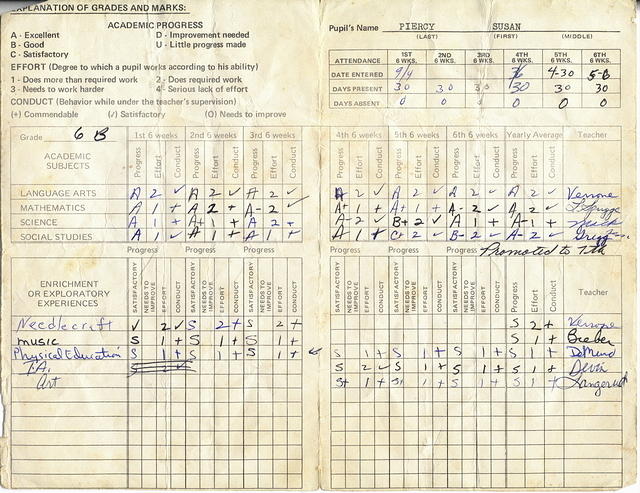 EXPLANATION OF GRADES AND MARKS:
ACADEMIC PROGRESS
A - Excellent D - Improvement needed
B - Good U - Little progress made
C - Satisfactory
EFFORT (Degree to which a pupil works according to his ability)
1 - Does more than required work 2 - Does required work
3 - Needs to work harder 4 - Serious lack of effort
CONDUCT (Behavior while under the teacher's supervision)
(+) Commendable (√) Satisfactory (O) Needs to improve
Pupil's Name PIERCY SUSAN
(LAST) (FIRST) (MIDDLE)
ATTENDANCE 1ST 6 WKS. 2ND 6 WKS. 3RD 6 WKS. 4TH 6 WKS. 5TH 6 WKS. 6TH 6 WKS.
DATE ENTERED 9/4 4-30 5-8
DAYS PRESENT 30 30 30 30 30 30
DAYS ABSENT 0 0 0 0 0 0
Grade 6 B 1st 6 weeks 2nd 6 weeks 3rd 6 weeks 4th 6 weeks 5th 6 weeks 6th 6 weeks Yearly Average Teacher
ACADEMIC SUBJECTS Progress Effort Conduct Progress Effort Conduct Progress Effort Conduct Progress Effort Conduct Progress Effort Conduct Progress Effort Conduct Progress Effort Conduct
LANGUAGE ARTS A 2 ✓ A 2 ✓ A 2 ✓ A 2 ✓ A 2 ✓ A 2 ✓ A 2 ✓
MATHEMATICS A 1 + A 2 + A- 2 ✓ A+ 1 + A+ 1 + A- 2 ✓ A 2 ✓
SCIENCE A 1 + A+ 1 + A 2 + A- 2 ✓ B+ 2 ✓ A 1 + A- 1 +
SOCIAL STUDIES A 1 ✓ A 1 + A 1 + A 1 + C+ 2 ✓ B- 2 ✓ A- 2 ✓
Progress Progress Progress Progress Progress Progress Promoted to 7th
ENRICHMENT OR EXPLORATORY EXPERIENCES SATISFACTORY NEEDS TO IMPROVE EFFORT CONDUCT SATISFACTORY NEEDS TO IMPROVE EFFORT CONDUCT SATISFACTORY NEEDS TO IMPROVE EFFORT CONDUCT SATISFACTORY NEEDS TO IMPROVE EFFORT CONDUCT SATISFACTORY NEEDS TO IMPROVE EFFORT CONDUCT SATISFACTORY NEEDS TO IMPROVE EFFORT CONDUCT Progress Effort Conduct Teacher
Needlecraft ✓ 2 ✓ S 2 + S 2 + S 2 +
music S 1 + S 1 + S 1 + S 1 +
Physical Education S 1 + S 1 + S 1 + S 1 + S 1 + S 1 + S 1 +
I.A. S 2 ✓ S 1 + S 1 + S 1 +
Art S+ 1 + S+ 1 + S 1 + S 1 +